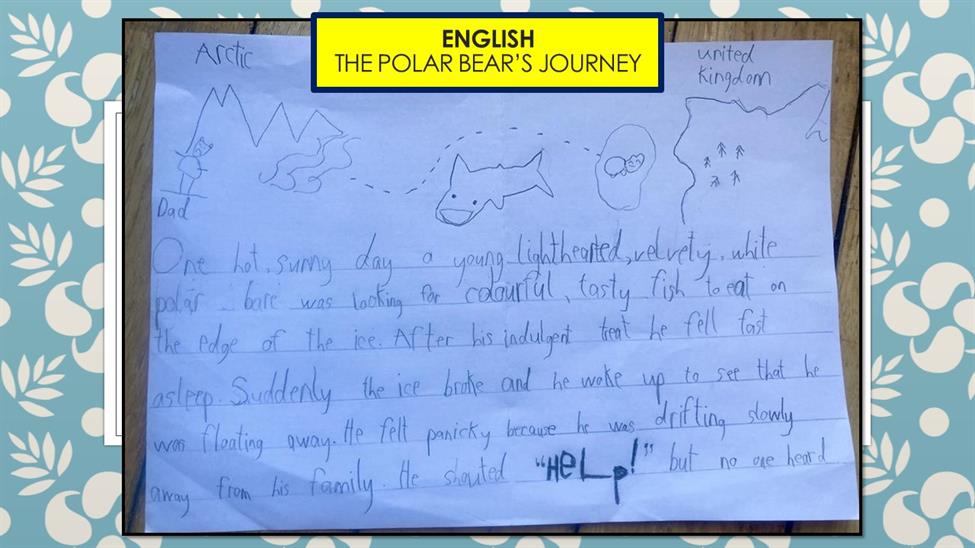 ENGLISH
THE POLAR BEAR'S JOURNEY
Arctic
United
Kingdom
Dad
One hot, sunny day a young lighthearted, velvety, white
polar bare was looking for colourful, tasty fish to eat on
the edge of the ice. After his indulgent treat he fell fast
asleep. Suddenly the ice broke and he woke up to see that he
was floating away. He felt panicky because he was drifting slowly
away from his family. He shouted "HeLp!" but no one heard